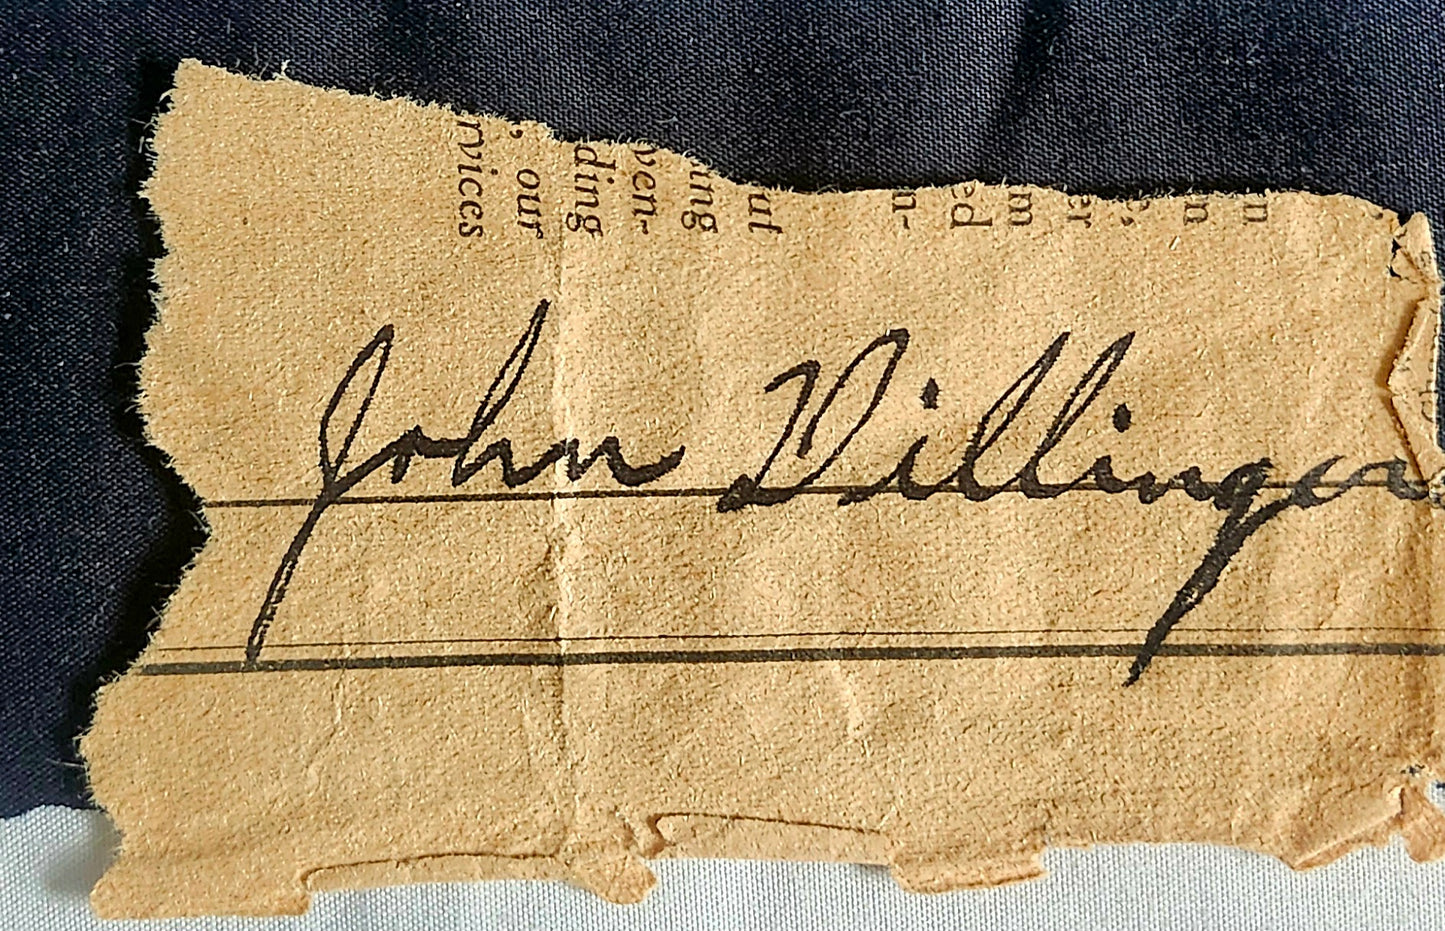 rvices
, our
ding
ven-
ing
ut
n-
ed
m
er
e,
n
n
John Dillinger